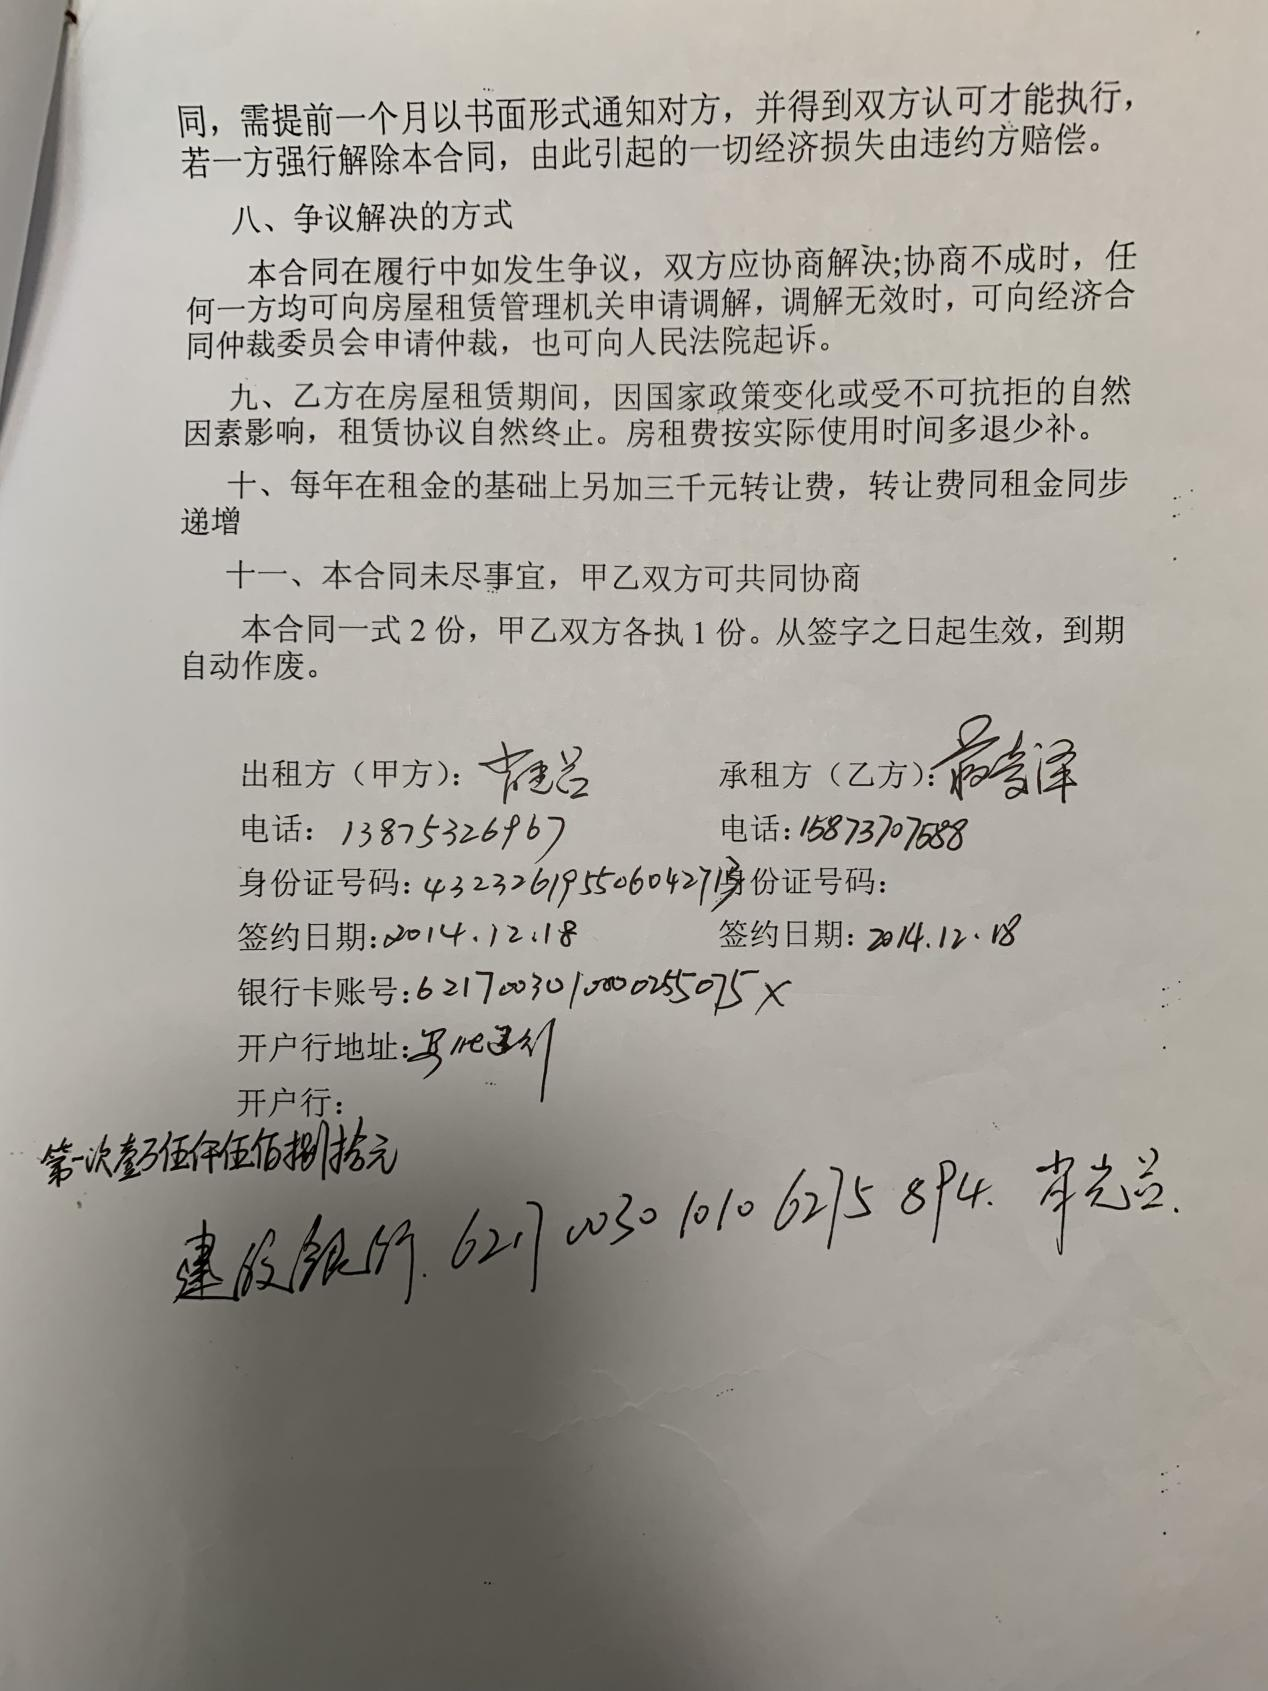 同，需提前一个月以书面形式通知对方，并得到双方认可才能执行，
若一方强行解除本合同，由此引起的一切经济损失由违约方赔偿。
八、争议解决的方式
本合同在履行中如发生争议，双方应协商解决;协商不成时，任
何一方均可向房屋租赁管理机关申请调解，调解无效时，可向经济合
同仲裁委员会申请仲裁，也可向人民法院起诉。
九、乙方在房屋租赁期间，因国家政策变化或受不可抗拒的自然
因素影响，租赁协议自然终止。房租费按实际使用时间多退少补。
十、每年在租金的基础上另加三千元转让费，转让费同租金同步
递增
十一、本合同未尽事宜，甲乙双方可共同协商
本合同一式2份，甲乙双方各执1份。从签字之日起生效，到期
自动作废。
出租方（甲方）： 承租方（乙方）：
电话：13875326967 电话：15873707688
身份证号码： 身份证号码：
签约日期：2014.12.18 签约日期：2014.12.18
银行卡账号：
开户行地址：
开户行：
第一次壹万伍仟伍佰捌拾元
建设银行. 6217 0030 1010 6275 894. 肖光益.